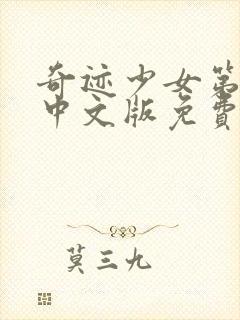 奇迹少女第
中文版免费
莫三九